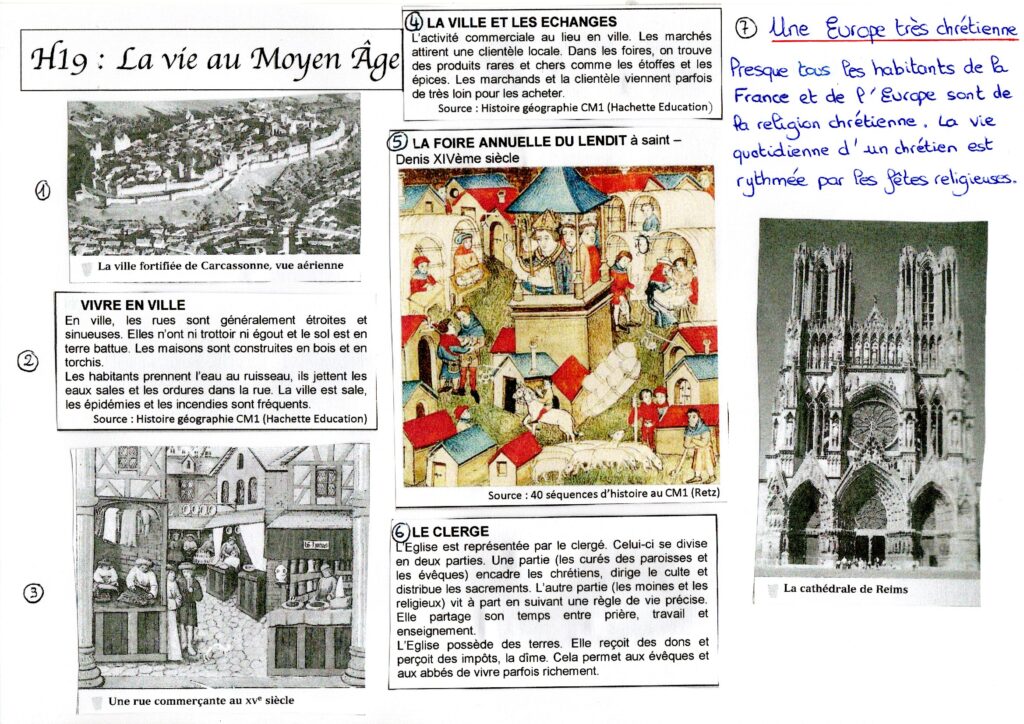 H19 : La vie au Moyen Âge
1
La ville fortifiée de Carcassonne, vue aérienne
2
VIVRE EN VILLE
En ville, les rues sont généralement étroites et
sinueuses. Elles n'ont ni trottoir ni égout et le sol est en
terre battue. Les maisons sont construites en bois et en
torchis.
Les habitants prennent l'eau au ruisseau, ils jettent les
eaux sales et les ordures dans la rue. La ville est sale,
les épidémies et les incendies sont fréquents.
Source : Histoire géographie CM1 (Hachette Education)
3
Une rue commerçante au XVe siècle
4 LA VILLE ET LES ECHANGES
L'activité commerciale au lieu en ville. Les marchés
attirent une clientèle locale. Dans les foires, on trouve
des produits rares et chers comme les étoffes et les
épices. Les marchands et la clientèle viennent parfois
de très loin pour les acheter.
Source : Histoire géographie CM1 (Hachette Education)
5 LA FOIRE ANNUELLE DU LENDIT à saint –
Denis XIVème siècle
Source : 40 séquences d'histoire au CM1 (Retz)
6 LE CLERGE
L'Eglise est représentée par le clergé. Celui-ci se divise
en deux parties. Une partie (les curés des paroisses et
les évêques) encadre les chrétiens, dirige le culte et
distribue les sacrements. L'autre partie (les moines et les
religieux) vit à part en suivant une règle de vie précise.
Elle partage son temps entre prière, travail et
enseignement.
L'Eglise possède des terres. Elle reçoit des dons et
perçoit des impôts, la dîme. Cela permet aux évêques et
aux abbés de vivre parfois richement.
7 Une Europe très chrétienne
Presque tous les habitants de la
France et de l'Europe sont de
la religion chrétienne. La vie
quotidienne d'un chrétien est
rythmée par les fêtes religieuses.
La cathédrale de Reims